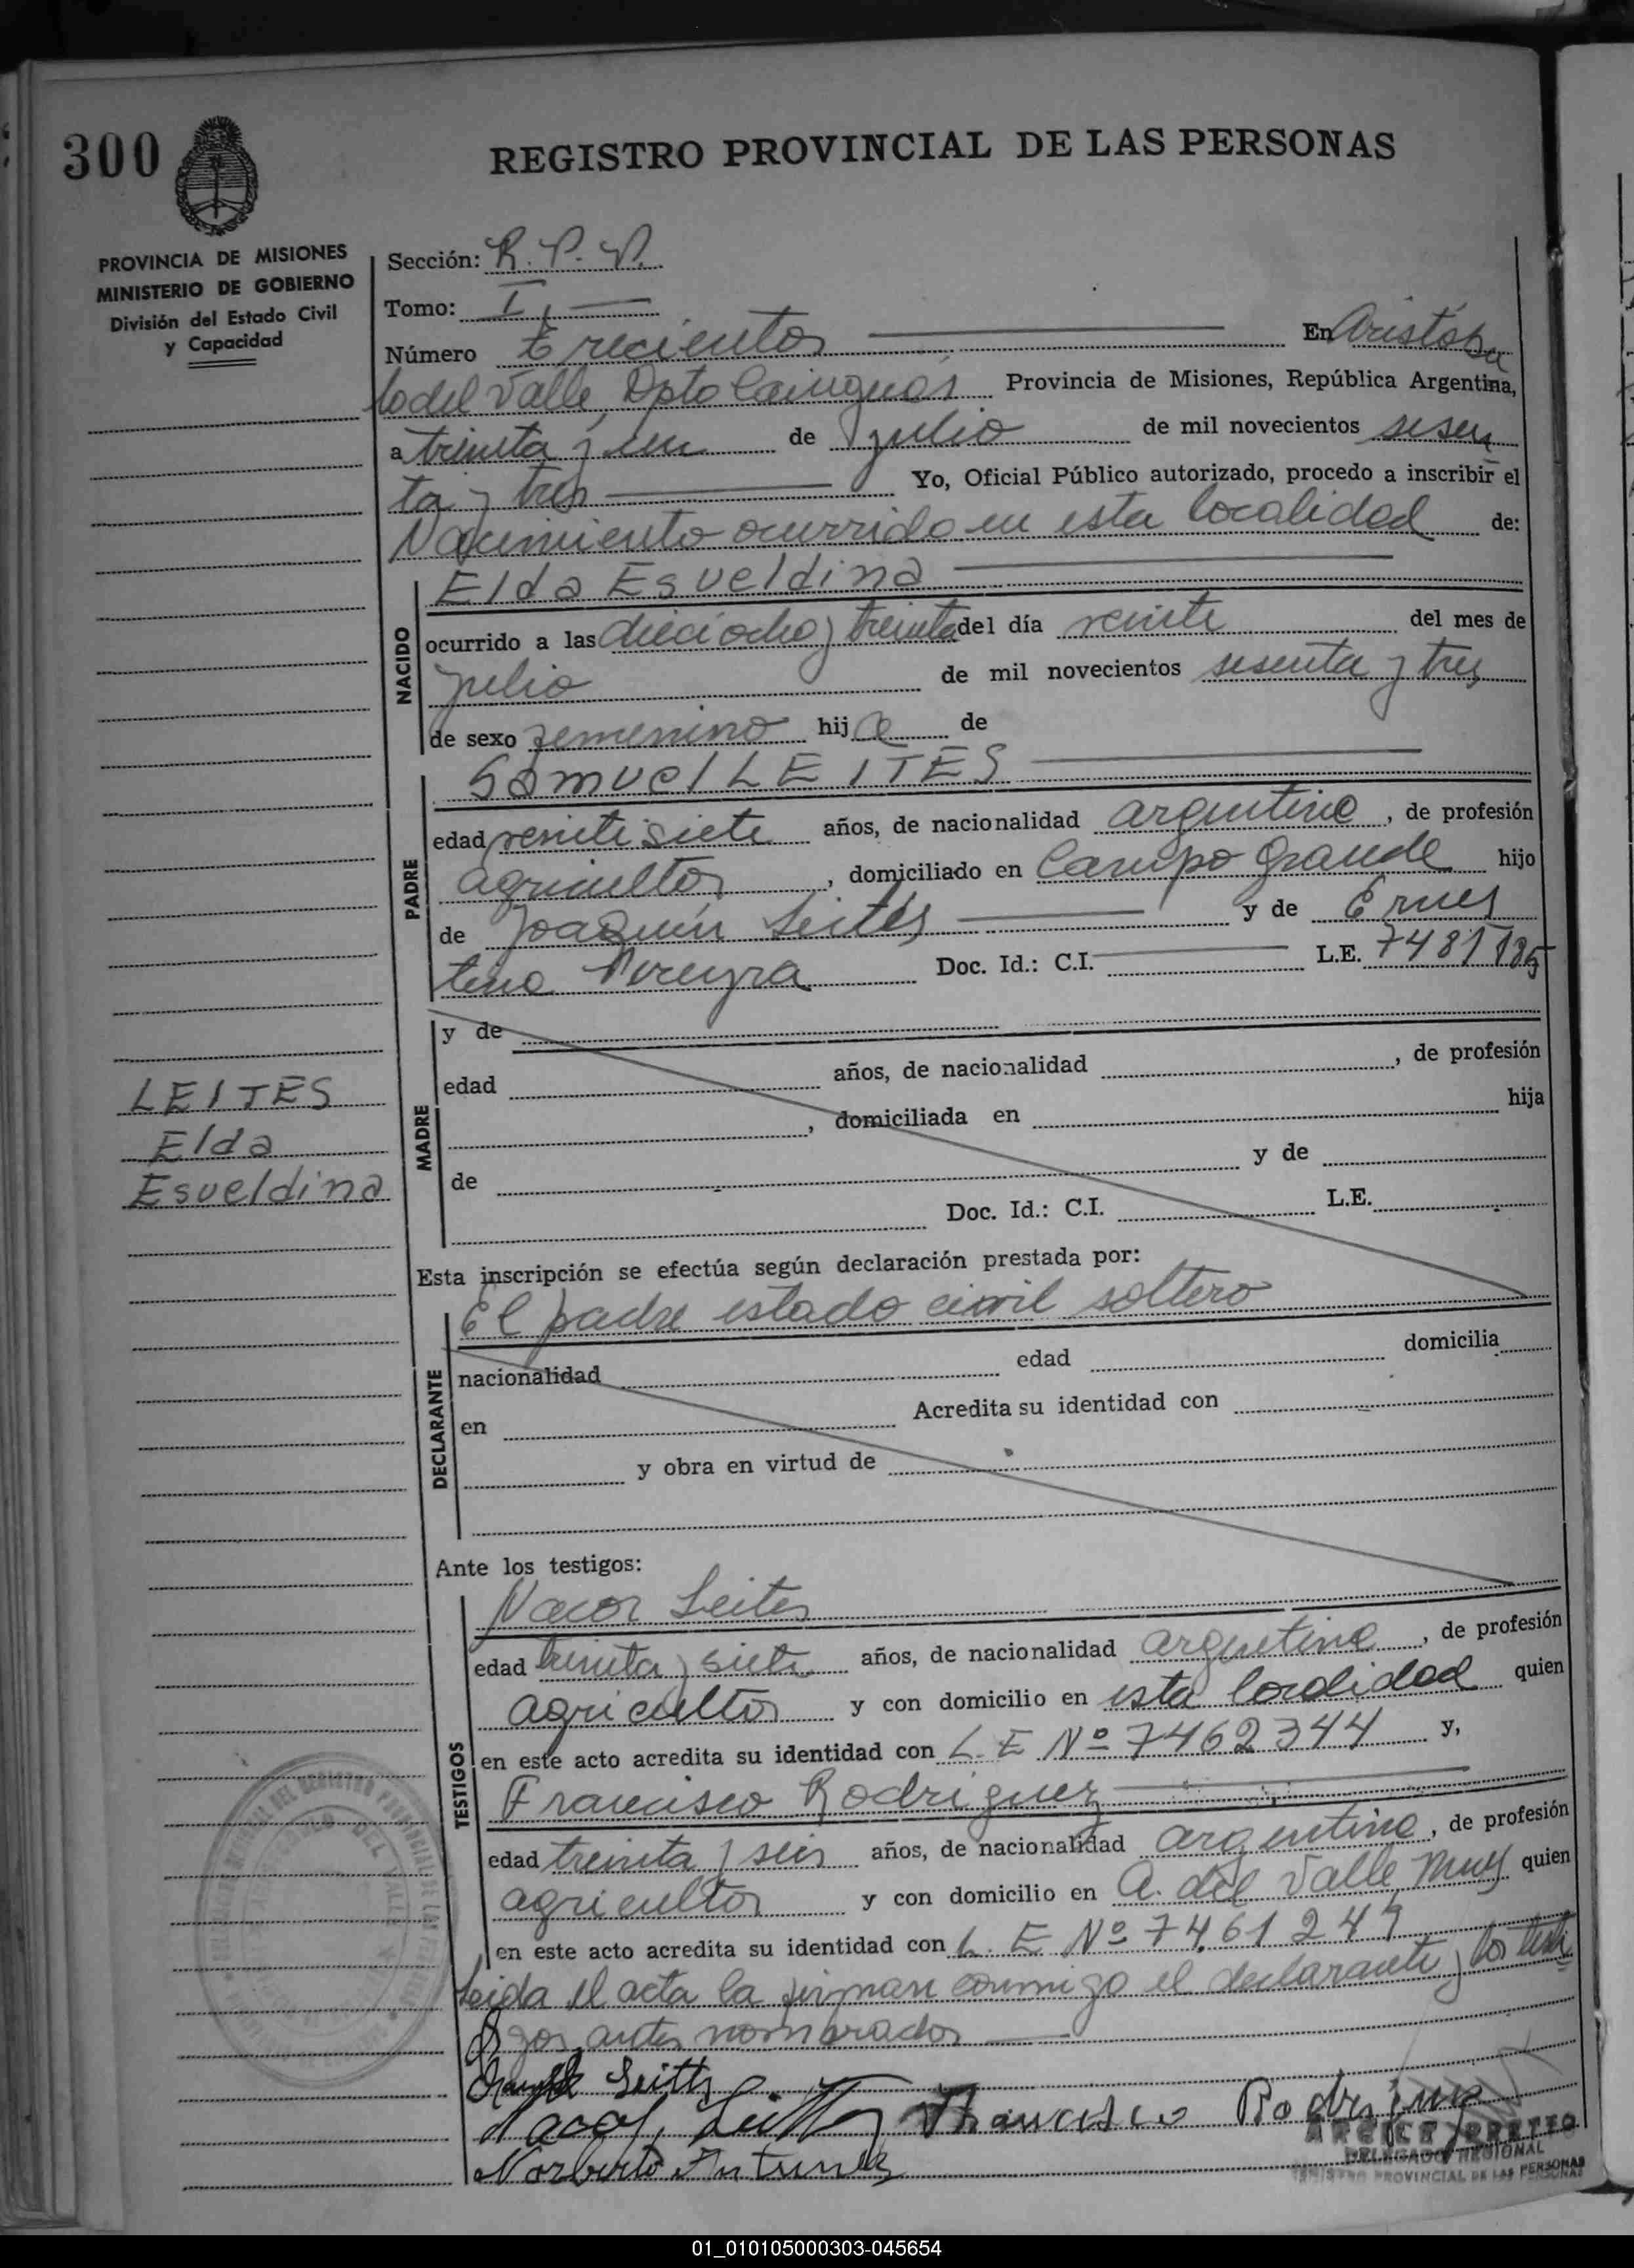 300
REGISTRO PROVINCIAL DE LAS PERSONAS
PROVINCIA DE MISIONES
MINISTERIO DE GOBIERNO
División del Estado Civil
y Capacidad
Sección: R. P. P.
Tomo: I
Número trecientos En Aristóbu
lo del Valle, Dpto Cainguás Provincia de Misiones, República Argentina,
a treinta y un de julio de mil novecientos sesen
ta y tres Yo, Oficial Público autorizado, procedo a inscribir el
Nacimiento ocurrido en esta localidad de:
NACIDO
Elda Esueldina
ocurrido a las dieciocho y treinta del día veinte del mes de
julio de mil novecientos sesenta y tres
de sexo femenino hija de
PADRE
Samuel LEITES
edad veintisiete años, de nacionalidad argentino, de profesión
agricultor, domiciliado en Campo Grande hijo
de Joaquín Leites y de Ernes
tina Pereyra Doc. Id.: C.I. L.E. 7481185
MADRE
y de
edad años, de nacionalidad , de profesión
, domiciliada en hija
de y de
Doc. Id.: C.I. L.E.
LEITES
Elda
Esueldina
Esta inscripción se efectúa según declaración prestada por:
DECLARANTE
El padre estado civil soltero
nacionalidad edad domicilia
en Acredita su identidad con
y obra en virtud de
Ante los testigos:
TESTIGOS
Nacor Leites
edad treinta y siete años, de nacionalidad argentino, de profesión
agricultor y con domicilio en esta localidad quien
en este acto acredita su identidad con L. E Nº 7462344 y,
Francisco Rodriguez
edad treinta y seis años, de nacionalidad argentino, de profesión
agricultor y con domicilio en A. del Valle, Mnes quien
en este acto acredita su identidad con L. E Nº 7461249
Leida el acta la firman conmigo el declarante y los testi
gos antes nombrados
Leites
Nacor Leites Francisco Rodriguez
Norberto Antunez
DELEGADO REGIONAL
REGISTRO PROVINCIAL DE LAS PERSONAS
01_010105000303-045654